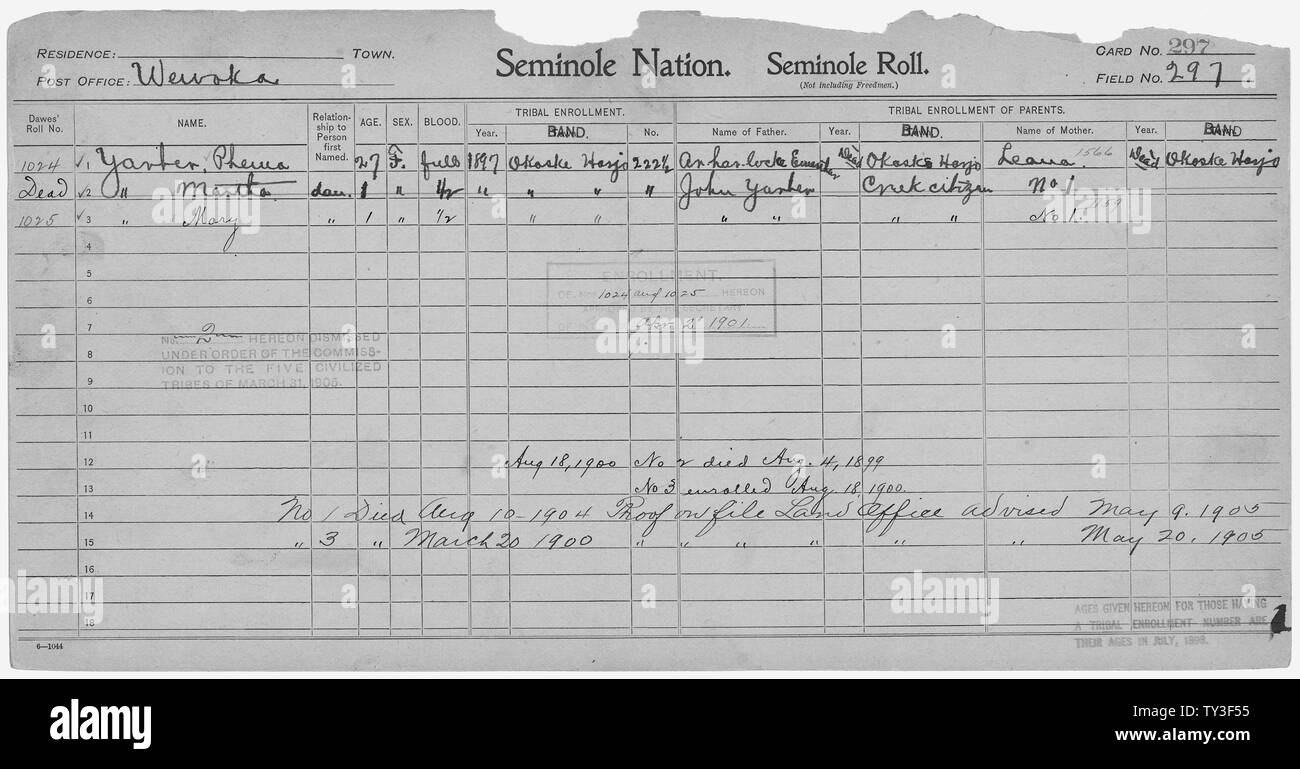 RESIDENCE: TOWN. Seminole Nation. Seminole Roll. CARD NO. 297
POST OFFICE: Wewoka (Not including Freedmen.) FIELD NO. 297
Dawes' Roll No. NAME. Relationship to Person first Named. AGE. SEX. BLOOD. TRIBAL ENROLLMENT. TRIBAL ENROLLMENT OF PARENTS.
Year. BAND. No. Name of Father. Year. BAND. Name of Mother. Year. BAND
1024 ✓1 Yarher, Phema 27 F. full 1897 Okoske Harjo 222½ Dead Okoske Harjo Leana 1566 Dead Okoske Harjo
Dead ✓2 " Martha dau. 1 " 1/2 " " " " John Yarher Creek citizen No 1.
1025 ✓3 " Mary " 1 " 1/2 " " " " " " No 1.
4
5
ENROLLMENT.
6 OF NOS. 1024 and 1025 HEREON
APPROVED BY THE SECRETARY
7 OF 2 1901
No. 2 HEREON DISMISSED
8 UNDER ORDER OF THE COMMISS-
ION TO THE FIVE CIVILIZED
9 TRIBES OF MARCH 31, 1905.
10
11
12 Aug 18, 1900 No 2 died Aug. 4, 1899
13 No 3 enrolled Aug. 18, 1900.
14 No 1 Died Aug 10-1904 Proof on file Land Office advised May 9. 1905
15 " 3 " March 20 1900 " " " " " " May 20. 1905
16
17
18
AGES GIVEN HEREON FOR THOSE HAVING
A TRIBAL ENROLLMENT NUMBER ARE
THEIR AGES IN JULY, 1898.
6—1044
alamy
a
alamy
Image ID: TY3F55
www.alamy.com